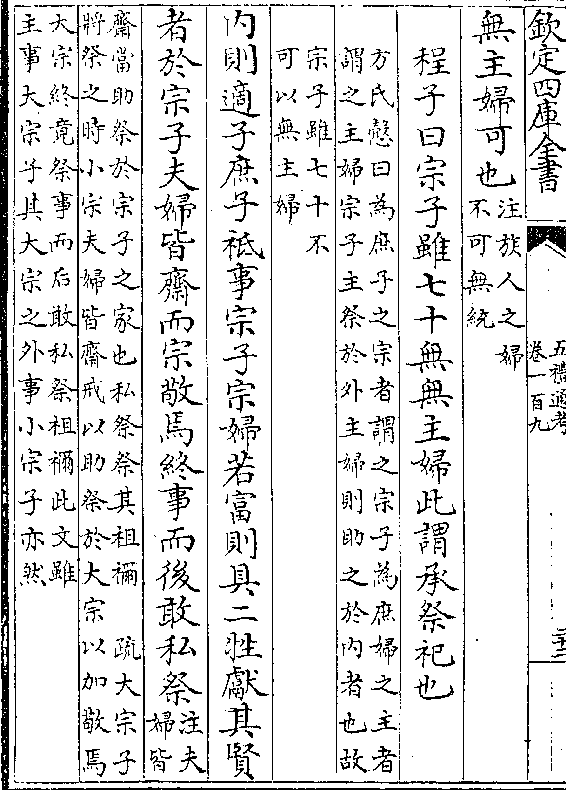 欽定四庫全書
五禮通考
卷一百九
無主婦可也注族人之婦
不可無統
程子曰宗子雖七十無無主婦此謂承祭祀也
方氏慤曰為庶子之宗者謂之宗子為庶婦之主者
謂之主婦宗子主祭於外主婦則助之於內者也故
宗子雖七十不
可以無主婦
內則適子庶子祗事宗子宗婦若富則具二牲獻其賢
者於宗子夫婦皆齋而宗敬焉終事而後敢私祭注夫
婦皆
齋當助祭於宗子之家也私祭祭其祖禰 疏大宗子
將祭之時小宗夫婦皆齋戒以助祭於大宗以加敬焉
大宗終竟祭事而后敢私祭祖禰此文雖
主事大宗子其大宗之外事小宗子亦然